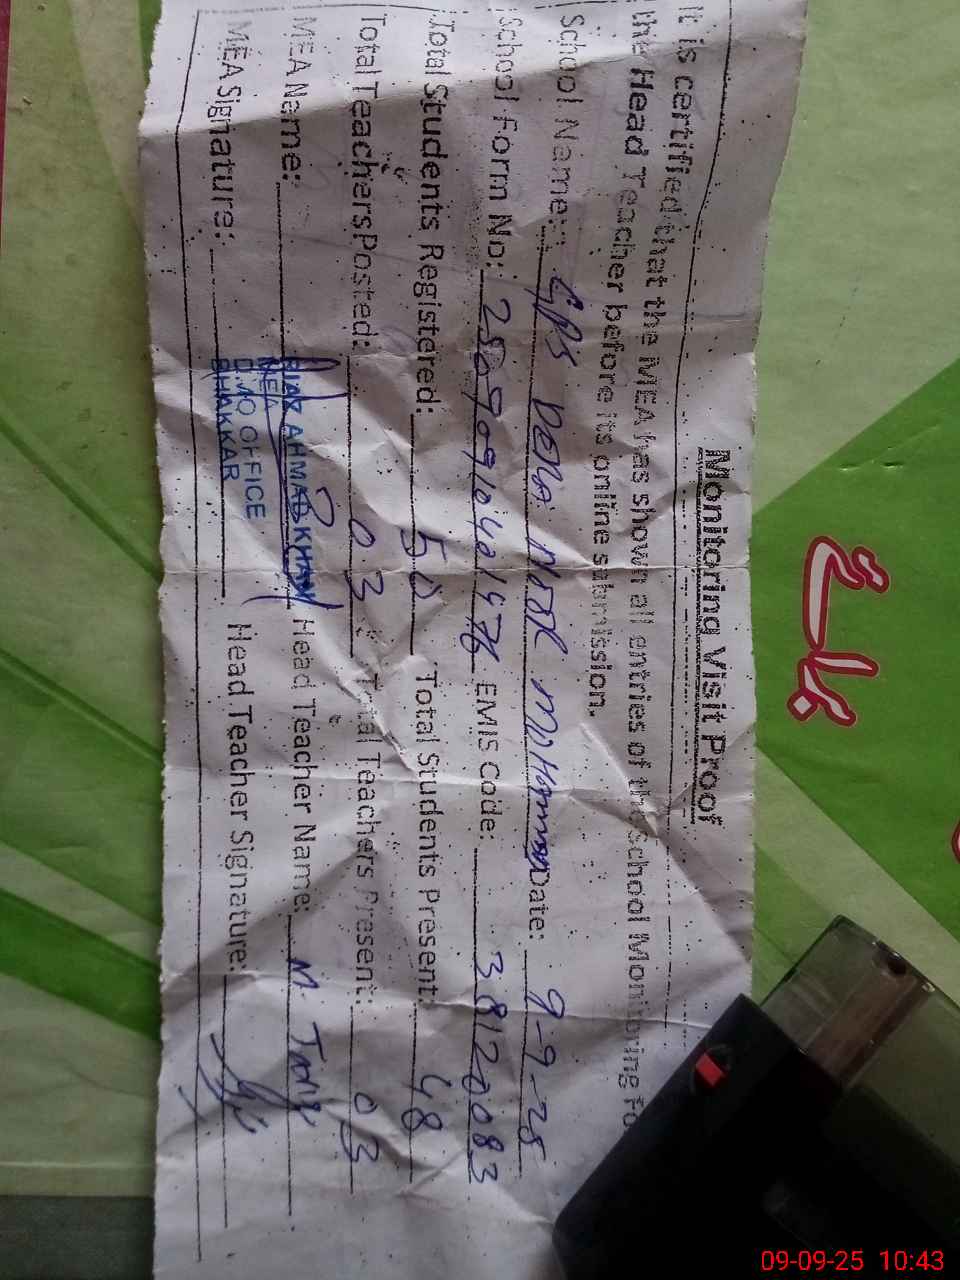 Monitoring Visit Proof
It is certified that the MEA has shown all entries of the School Monitoring Fo
the Head Teacher before its online submission.
School Name: GPS DERA NOOR MUHAMMAD Date: 9-9-25
School Form No: EMIS Code: 38120083
Total Students Registered: 50 Total Students Present: 48
Total Teachers Posted: 03 Total Teachers Present: 03
MEA Name: RIAZ AHMAD KHAN Head Teacher Name: M.
MEA
MEA Signature: Head Teacher Signature:
DMO OFFICE
BHAKKAR
09-09-25 10:43